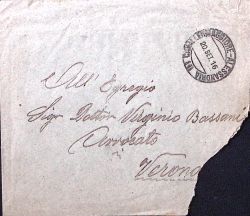 All' Egregio
Sigr Dottor Virginio Bassani
Avvocato
Verona
20 DIC 16